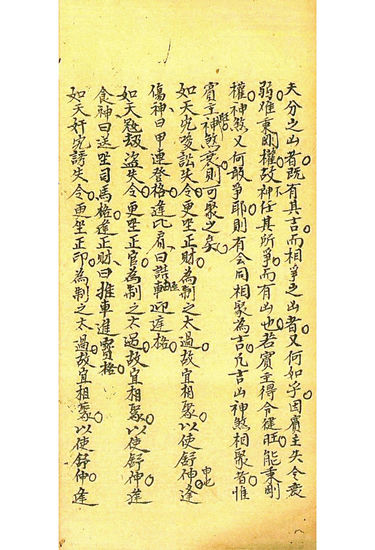 夫分之凶者。既有其吉。而相爭之凶者。又何如乎。因賓主失令衰
弱。难秉剛權。故神任其所爭而有凶也。若賓主得令健旺。能秉剛
權。神煞又何敢爭耶。則有会同相聚為吉。凡吉凶神煞相聚者。惟
賓主神煞 則可聚之矣。
如天 訟失令。更坐正財。為制之太過。故宜相聚。以使舒伸。逢
傷神、曰甲連登格。逢比肩、曰 迎 格。
如天 劫盜失令。更坐正官。為制之太過。故宜相聚。以使舒伸。逢
食神曰送 司馬格。逢正財、曰推車進寶格。
如天奸 誘失令。更坐正印。為制之太過。故宜相聚。以使舒伸。逢